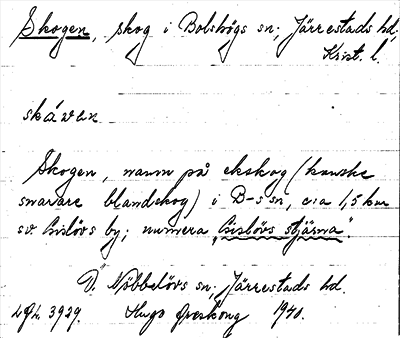 Skogen, skog i Bolshögs sn; Järrestads hd,
Krist. l.
skåven
Skogen, namn på ekskog (kanske
snarare blandskog) i B-s sn, c:a 1,5 km
sv Gislövs by; numera "Gislövs stjärna".
Ö. Nöbbelövs sn; Järrestads hd.
3929. Hugo Areskoug 1940.